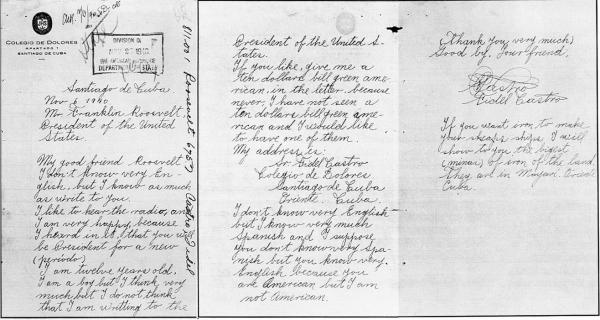 COLEGIO DE DOLORES
APARTADO 1
SANTIAGO DE CUBA
DIVISION OF
DEPARTMENT OF STATE
Santiago de Cuba
Nov 6 1940
Mr Franklin Roosevelt,
President of the United
States.
My good friend Roosevelt
I don't know very En-
glish, but I know as much
as write to you.
I like to hear the radio, and
I am very happy, because
I heard in it, that you will
be President for a new
(periodo)
I am twelve years old.
I am a boy but I think very
much but I do not think
that I am writting to the
811.001 Roosevelt
Castro, Fidel
President of the United S-
tates.
If you like, give me a
ten dollars bill green ame-
rican, in the letter, because
never, I have not seen a
ten dollars bill green ame-
rican and I would like
to have one of them.
My address is:
Sr. Fidel Castro
Colegio de Dolores
Santiago de Cuba
Oriente. Cuba.
I don't know very English
but I know very much
Spanish and I suppose
you don't know very Spa-
nish but you know very
English because you
are American but I am
not American.
(Thank you very much)
Good by. Your friend,
Castro
Fidel Castro
If you want iron to make
your ships I will
show to you the bigest
(minas) of iron of the land.
They are in Mayari Oriente
Cuba.